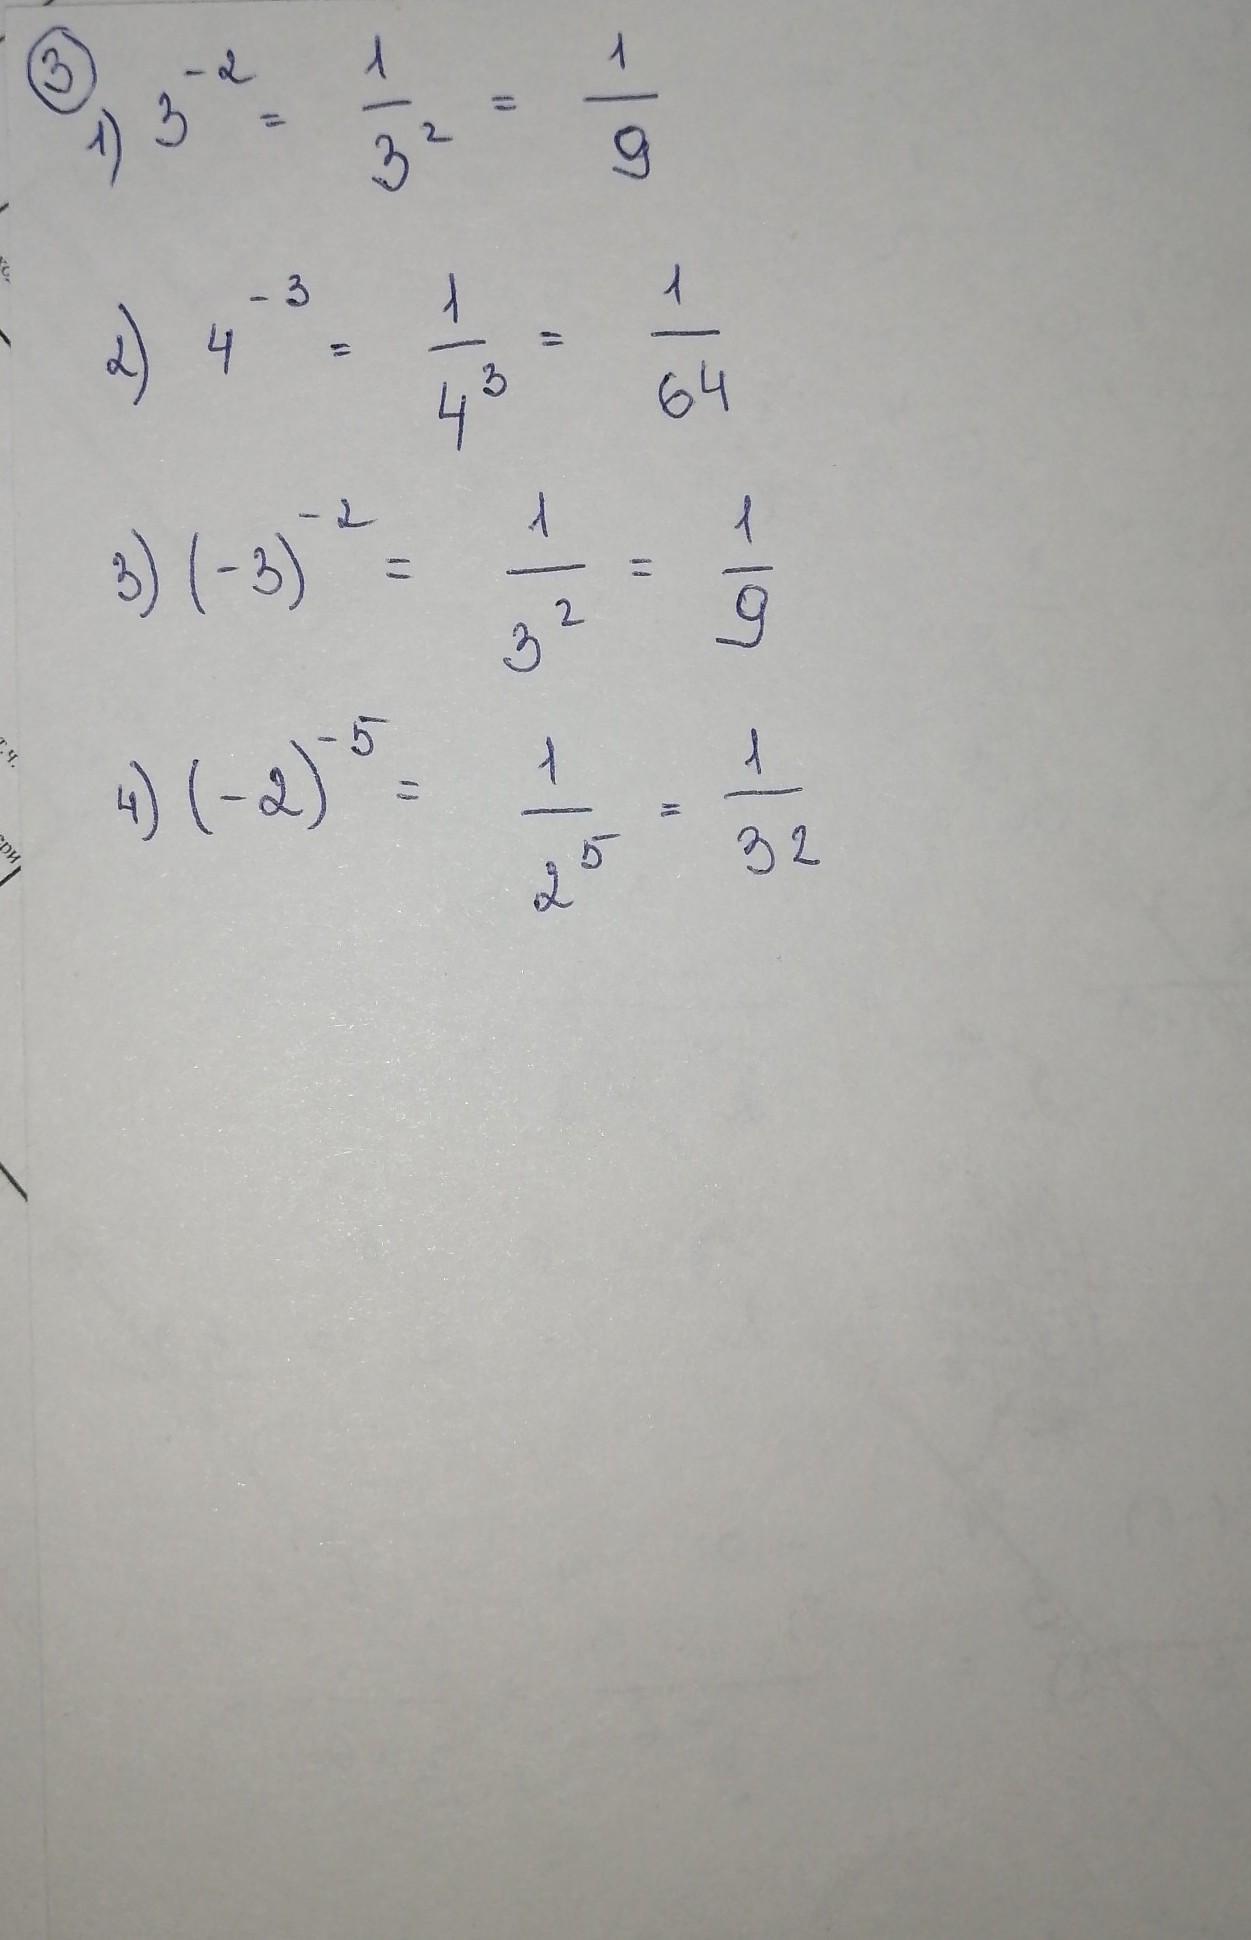 3
1) 3⁻² = 1/3² = 1/9
2) 4⁻³ = 1/4³ = 1/64
3) (-3)⁻² = 1/3² = 1/9
4) (-2)⁻⁵ = 1/2⁵ = 1/32